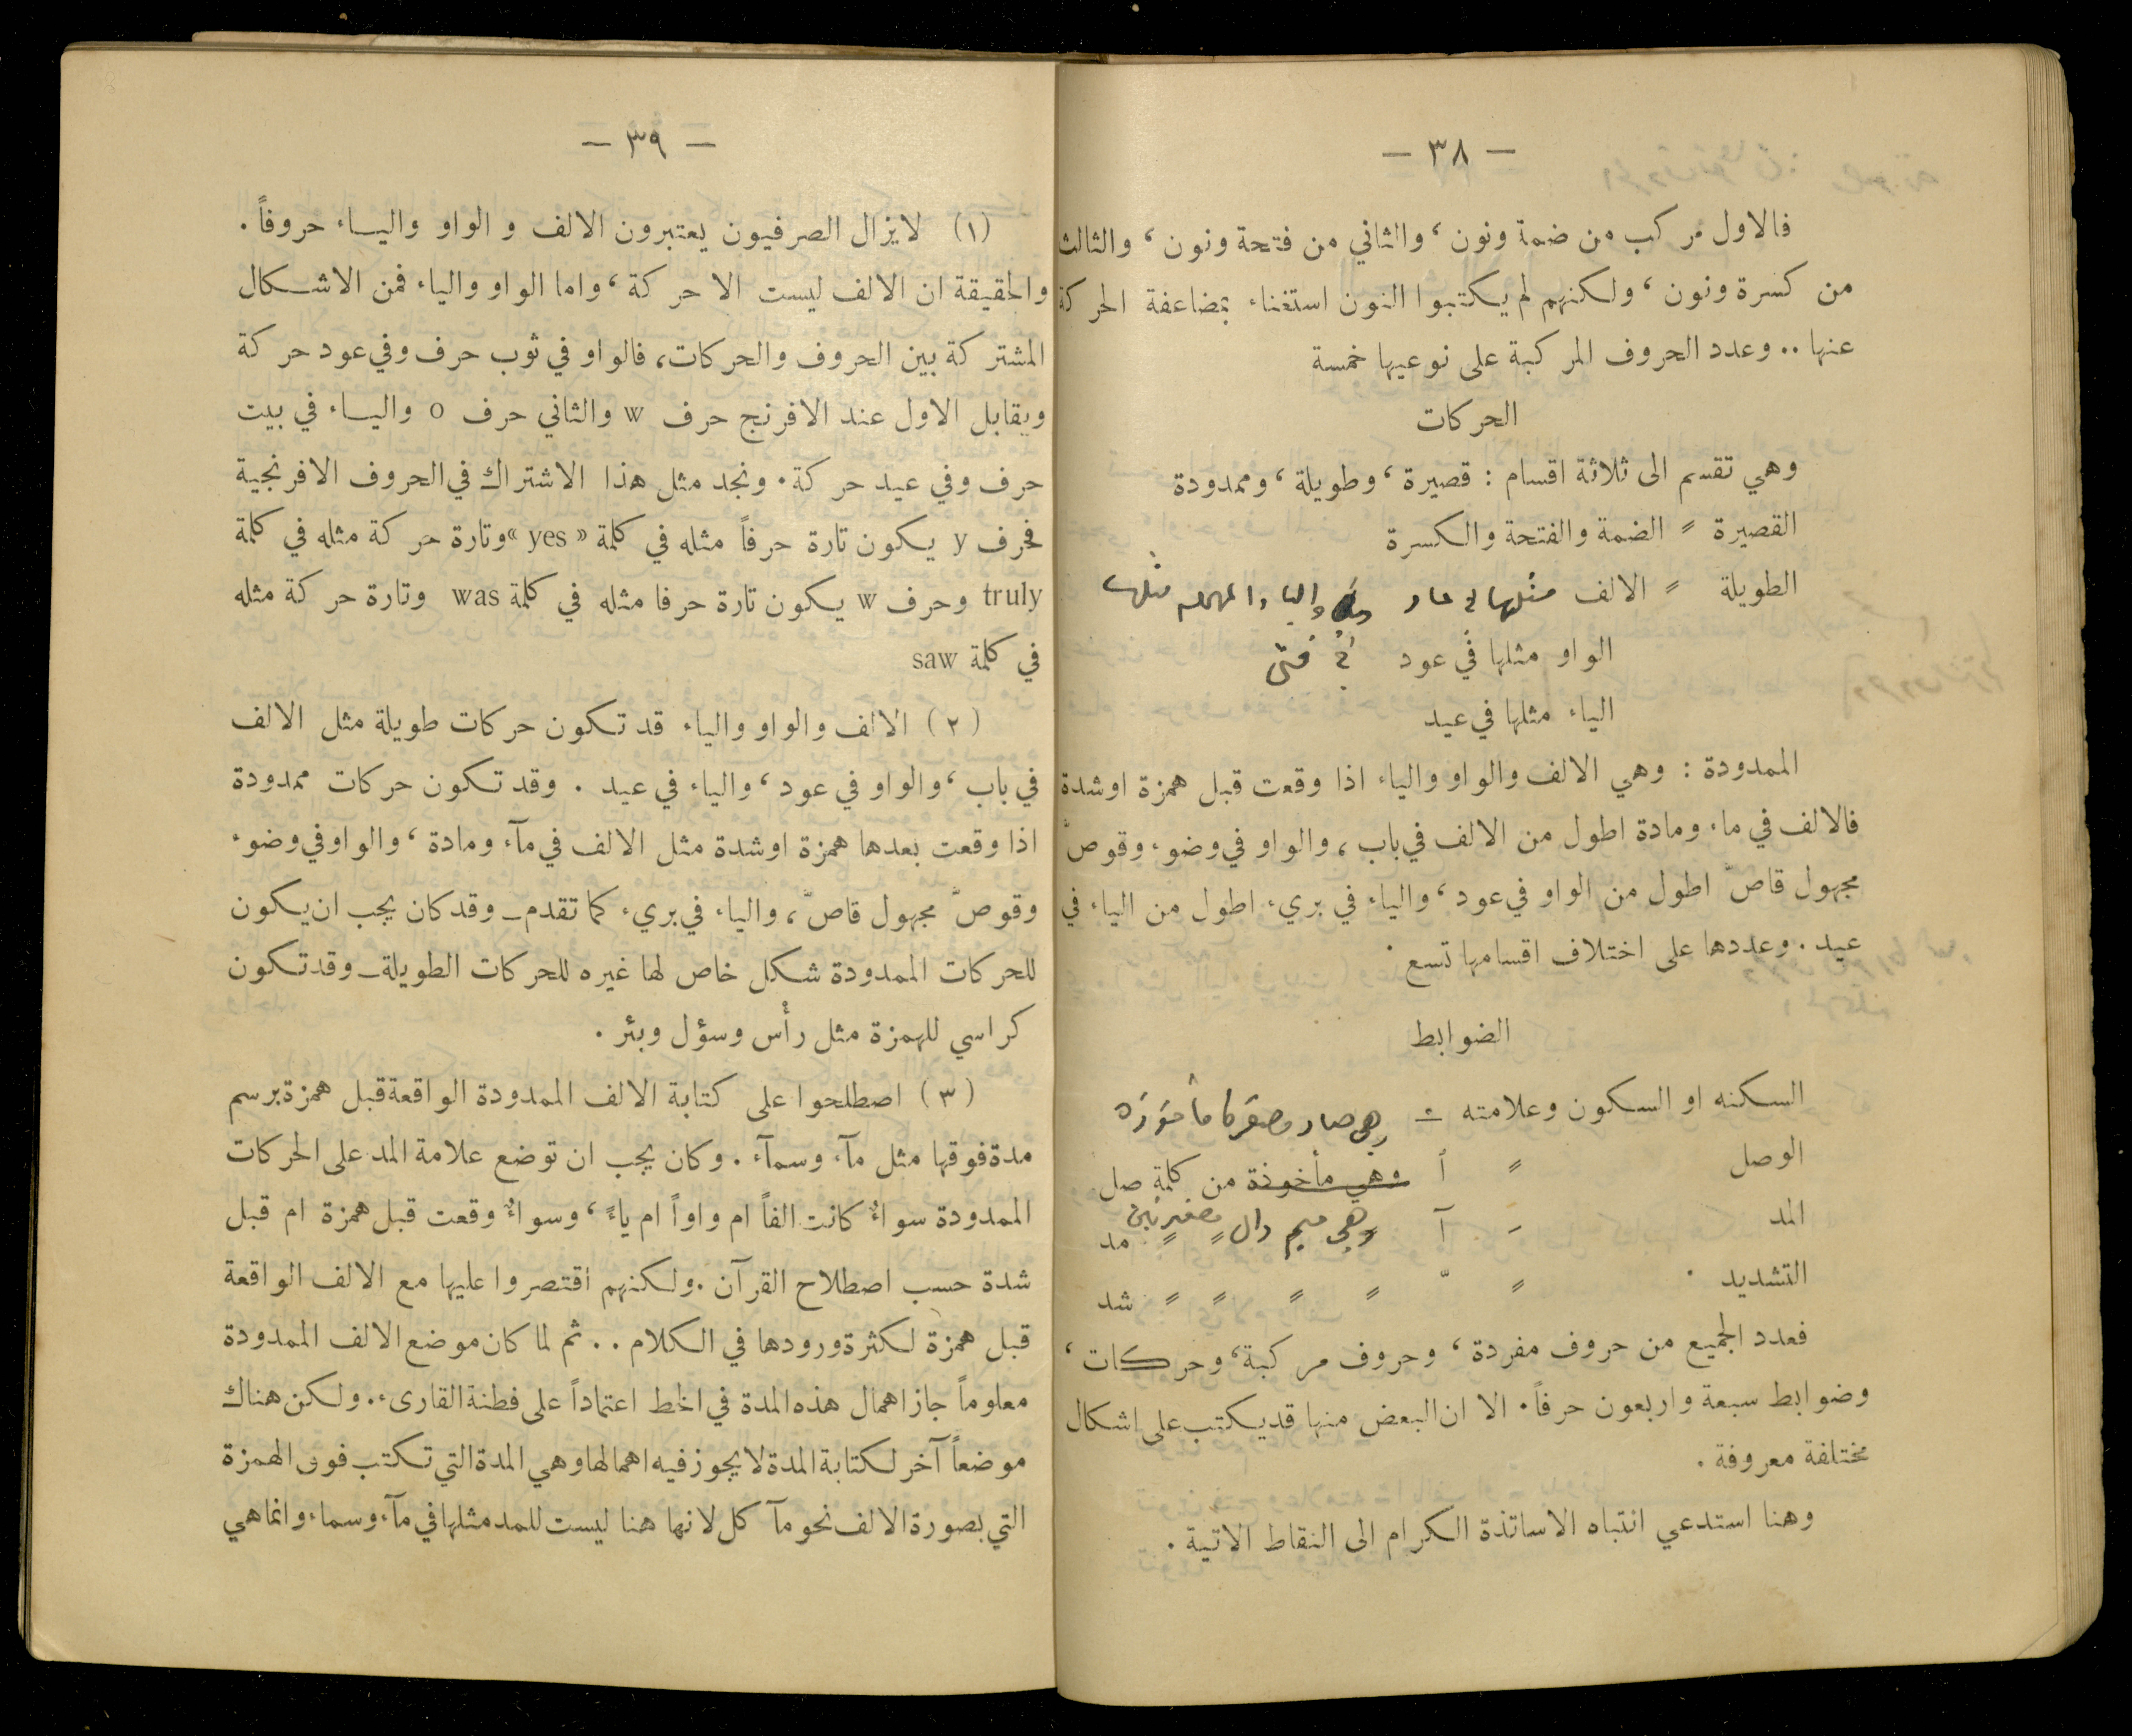 - ٣٨ -
فالاول مركب من ضمة ونون ، والثاني من فتحة ونون ، والثالث
من كسرة ونون ، ولكنهم لم يكتبوا النون استغناء بمضاعفة الحركة
عنها .. وعدد الحروف المركبة على نوعيها خمسة
الحركات
وهي تقسم الى ثلاثة اقسام : قصيرة ، وطويلة ، وممدودة
القصيرة = الضمة والفتحة والكسرة
الطويلة = الالف مثلها في عاد والياء المهملة مثلها
الواو مثلها في عود في فتى
الياء مثلها في عيد
الممدودة : وهي الالف والواو والياء اذا وقعت قبل همزة او شدة
فالالف في ماء ومادة اطول من الالف في باب ، والواو في وضوء وقوصّ
مجهول قاصّ اطول من الواو في عود ، والياء في بريء اطول من الياء في
عيد . وعددها على اختلاف اقسامها تسع .
الضوابط
السكنه او السكون وعلامته ْ وهي صاد مصغرة مأخوذة
الوصل = ٱ وهي مأخوذة من كلمة صل
المد - آ وهي ميم دال مصغرتين = = مد
التشديد . = ّ = = = = شد
فعدد الجميع من حروف مفردة ، وحروف مركبة ، وحركات ،
وضوابط سبعة واربعون حرفاً . الا ان البعض منها قد يكتب على اشكال
مختلفة معروفة .
وهنا استدعي انتباه الاساتذة الكرام الى النقاط الاتية .
- ٣٩ -
(١) لا يزال الصرفيون يعتبرون الالف و الواو والياء حروفاً .
والحقيقة ان الالف ليست الا حركة ، واما الواو والياء فمن الاشكال
المشتركة بين الحروف والحركات ، فالواو في ثوب حرف وفي عود حركة
ويقابل الاول عند الافرنج حرف w والثاني حرف o والياء في بيت
حرف وفي عيد حركة . ونجد مثل هذا الاشتراك في الحروف الافرنجية
فحرف y يكون تارة حرفاً مثله في كلمة « yes » وتارة حركة مثله في كلمة
truly وحرف w يكون تارة حرفا مثله في كلمة was وتارة حركة مثله
في كلمة saw
(٢) الالف والواو والياء قد تكون حركات طويلة مثل الالف
في باب ، والواو في عود ، والياء في عيد . وقد تكون حركات ممدودة
اذا وقعت بعدها همزة او شدة مثل الالف في مآء ومادة ، والواو في وضوء
وقوصّ مجهول قاصّ ، والياء في بريء كما تقدم ـ وقد كان يجب ان يكون
للحركات الممدودة شكل خاص لها غيره للحركات الطويلة ـ وقد تكون
كراسي للهمزة مثل رأْس وسؤل وبئر .
(٣) اصطلحوا على كتابة الالف الممدودة الواقعة قبل همزة برسم
مدة فوقها مثل مآء وسمآء . وكان يجب ان توضع علامة المد على الحركات
الممدودة سواءٌ كانت الفاً ام واواً ام ياءً ، وسواءٌ وقعت قبل همزة ام قبل
شدة حسب اصطلاح القرآن . ولكنهم اقتصروا عليها مع الالف الواقعة
قبل همزة لكثرة ورودها في الكلام .. ثم لما كان موضع الالف الممدودة
معلوماً جاز اهمال هذه المدة في الخط اعتماداً على فطنة القارىء . ولكن هناك
موضعاً آخر لكتابة المدة لا يجوز فيه اهمالها وهي المدة التي تكتب فوق الهمزة
التي بصورة الالف نحو مآ كل لانها هنا ليست للمد مثلها في مآء وسماء وانما هي